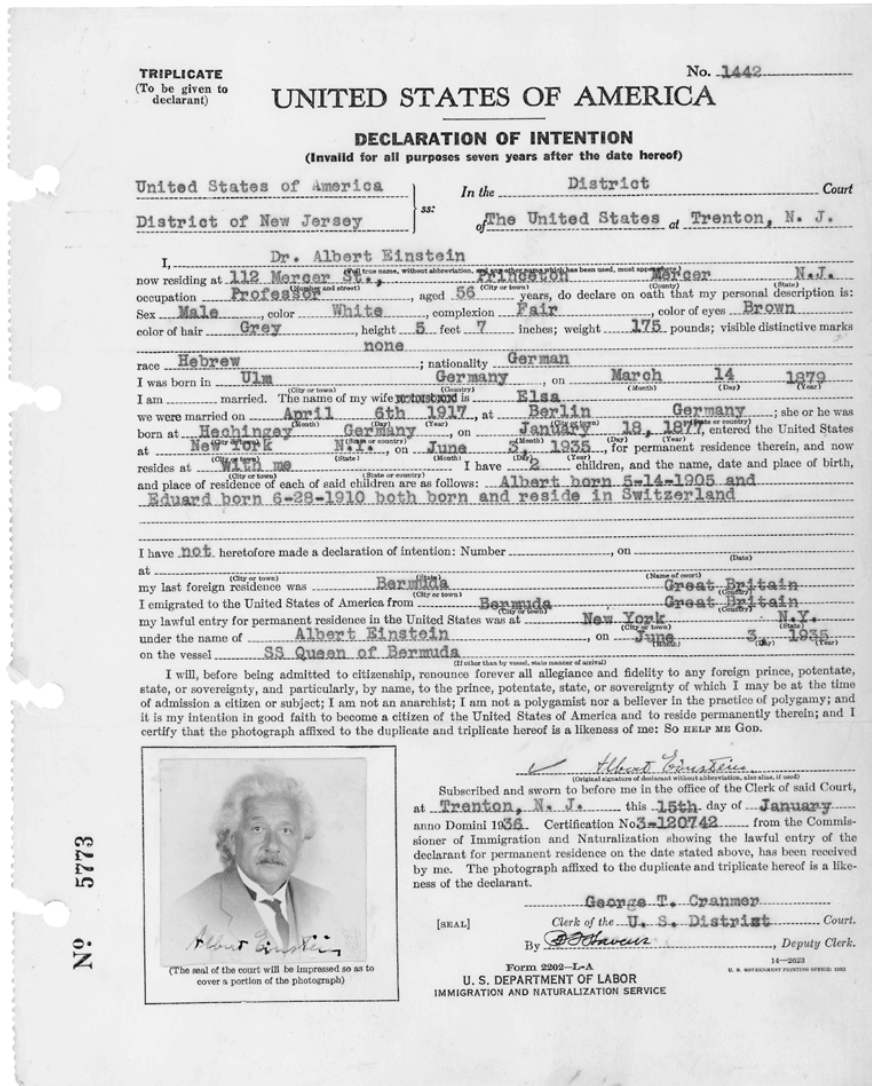 TRIPLICATE
(To be given to
declarant)
No. 1442
UNITED STATES OF AMERICA
DECLARATION OF INTENTION
(Invalid for all purposes seven years after the date hereof)
United States of America
District of New Jersey
ss:
In the District Court
of The United States at Trenton, N. J.
I, Dr. Albert Einstein
(Full true name, without abbreviation, and any other name which has been used, must appear here)
now residing at 112 Mercer St., Princeton Mercer N.J.
(Number and street) (City or town) (County) (State)
occupation Professor, aged 56 years, do declare on oath that my personal description is:
Sex Male, color White, complexion Fair, color of eyes Brown
color of hair Grey, height 5 feet 7 inches; weight 175 pounds; visible distinctive marks
none
race Hebrew; nationality German
I was born in Ulm Germany, on March 14 1879
(City or town) (Country) (Month) (Day) (Year)
I am married. The name of my wife is Elsa
we were married on April 6th 1917, at Berlin Germany; she or he was
(Month) (Day) (Year) (City or town) (State or country)
born at Hechingey Germany, on January 18, 1877, entered the United States
(City or town) (State or country) (Month) (Day) (Year)
at New York N.Y., on June 3 1935, for permanent residence therein, and now
(City or town) (State) (Month) (Day) (Year)
resides at With me I have 2 children, and the name, date and place of birth,
(City or town) (State or country)
and place of residence of each of said children are as follows: Albert born 5-14-1905 and
Eduard born 6-28-1910 both born and reside in Switzerland
I have not heretofore made a declaration of intention: Number, on
(Date)
at
(City or town) (State) (Name of court)
my last foreign residence was Bermuda Great Britain
(City or town) (Country)
I emigrated to the United States of America from Bermuda Great Britain
(City or town) (Country)
my lawful entry for permanent residence in the United States was at New York N.Y.
(City or town) (State)
under the name of Albert Einstein, on June 3, 1935
(Month) (Day) (Year)
on the vessel SS Queen of Bermuda
(If other than by vessel, state manner of arrival)
I will, before being admitted to citizenship, renounce forever all allegiance and fidelity to any foreign prince, potentate,
state, or sovereignty, and particularly, by name, to the prince, potentate, state, or sovereignty of which I may be at the time
of admission a citizen or subject; I am not an anarchist; I am not a polygamist nor a believer in the practice of polygamy; and
it is my intention in good faith to become a citizen of the United States of America and to reside permanently therein; and I
certify that the photograph affixed to the duplicate and triplicate hereof is a likeness of me: SO HELP ME GOD.
Albert Einstein.
(Original signature of declarant without abbreviation, also alias, if used)
Subscribed and sworn to before me in the office of the Clerk of said Court,
at Trenton, N. J. this 15th day of January
anno Domini 1936. Certification No 3-120742 from the Commis-
sioner of Immigration and Naturalization showing the lawful entry of the
declarant for permanent residence on the date stated above, has been received
by me. The photograph affixed to the duplicate and triplicate hereof is a like-
ness of the declarant.
George T. Cranmer
[SEAL] Clerk of the U. S. District Court.
By, Deputy Clerk.
Form 2202—L-A
14—2623
U. S. DEPARTMENT OF LABOR
U. S. GOVERNMENT PRINTING OFFICE:
IMMIGRATION AND NATURALIZATION SERVICE
Albert Einstein
(The seal of the court will be impressed so as to
cover a portion of the photograph)
No 5773